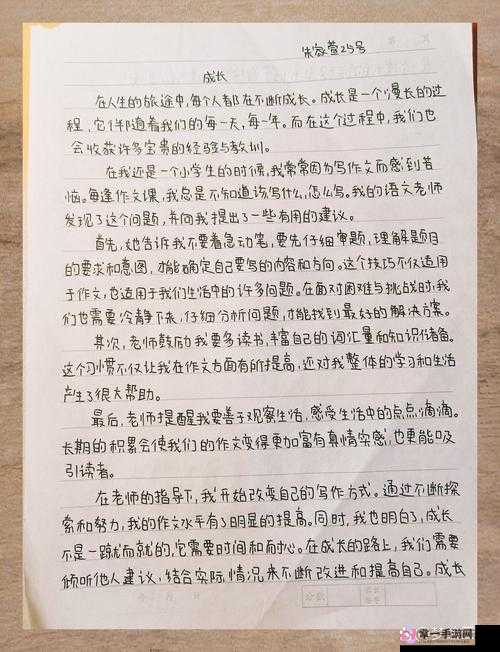 朱家萱25号
成长
在人生的旅途中,每个人都在不断成长。成长是一个漫长的过
程,它伴随着我们的每一天,每一年。而在这个过程中,我们也
会收获许多宝贵的经验与教训。
在我还是一个小学生的时候,我常常因为写作文而感到苦
恼。每逢作文课,我总是不知道该写什么,怎么写。我的语文老师
发现了这个问题,并向我提出了一些有用的建议。
首先,她告诉我不要着急动笔,要先仔细审题,理解题目
的要求和意图,才能确定自己要写的内容和方向。这个技巧不仅适用
于作文,也适用于我们生活中的许多问题。在面对困难与挑战时,我
们也需要冷静下来,仔细分析问题,才能找到最好的解决方案。
其次,老师鼓励我要多读书,丰富自己的词汇量和知识储备。
这个习惯不仅让我在作文方面有所提高,还对我整体的学习和生活
产生了很大帮助。
最后,老师提醒我要善于观察生活,感受生活中的点点滴滴。
长期的积累会使我们的作文变得更加富有真情实感,也更能吸
引读者。
在老师的指导下,我开始改变自己的写作方式。通过不断探
索和努力,我的作文水平有了明显的提高。同时,我也明白了,成长
不是一蹴而就的,它需要时间和耐心。在成长的路上,我们需要
倾听他人建议,结合实际情况来不断改进和提高自己。成长
掌一手游网